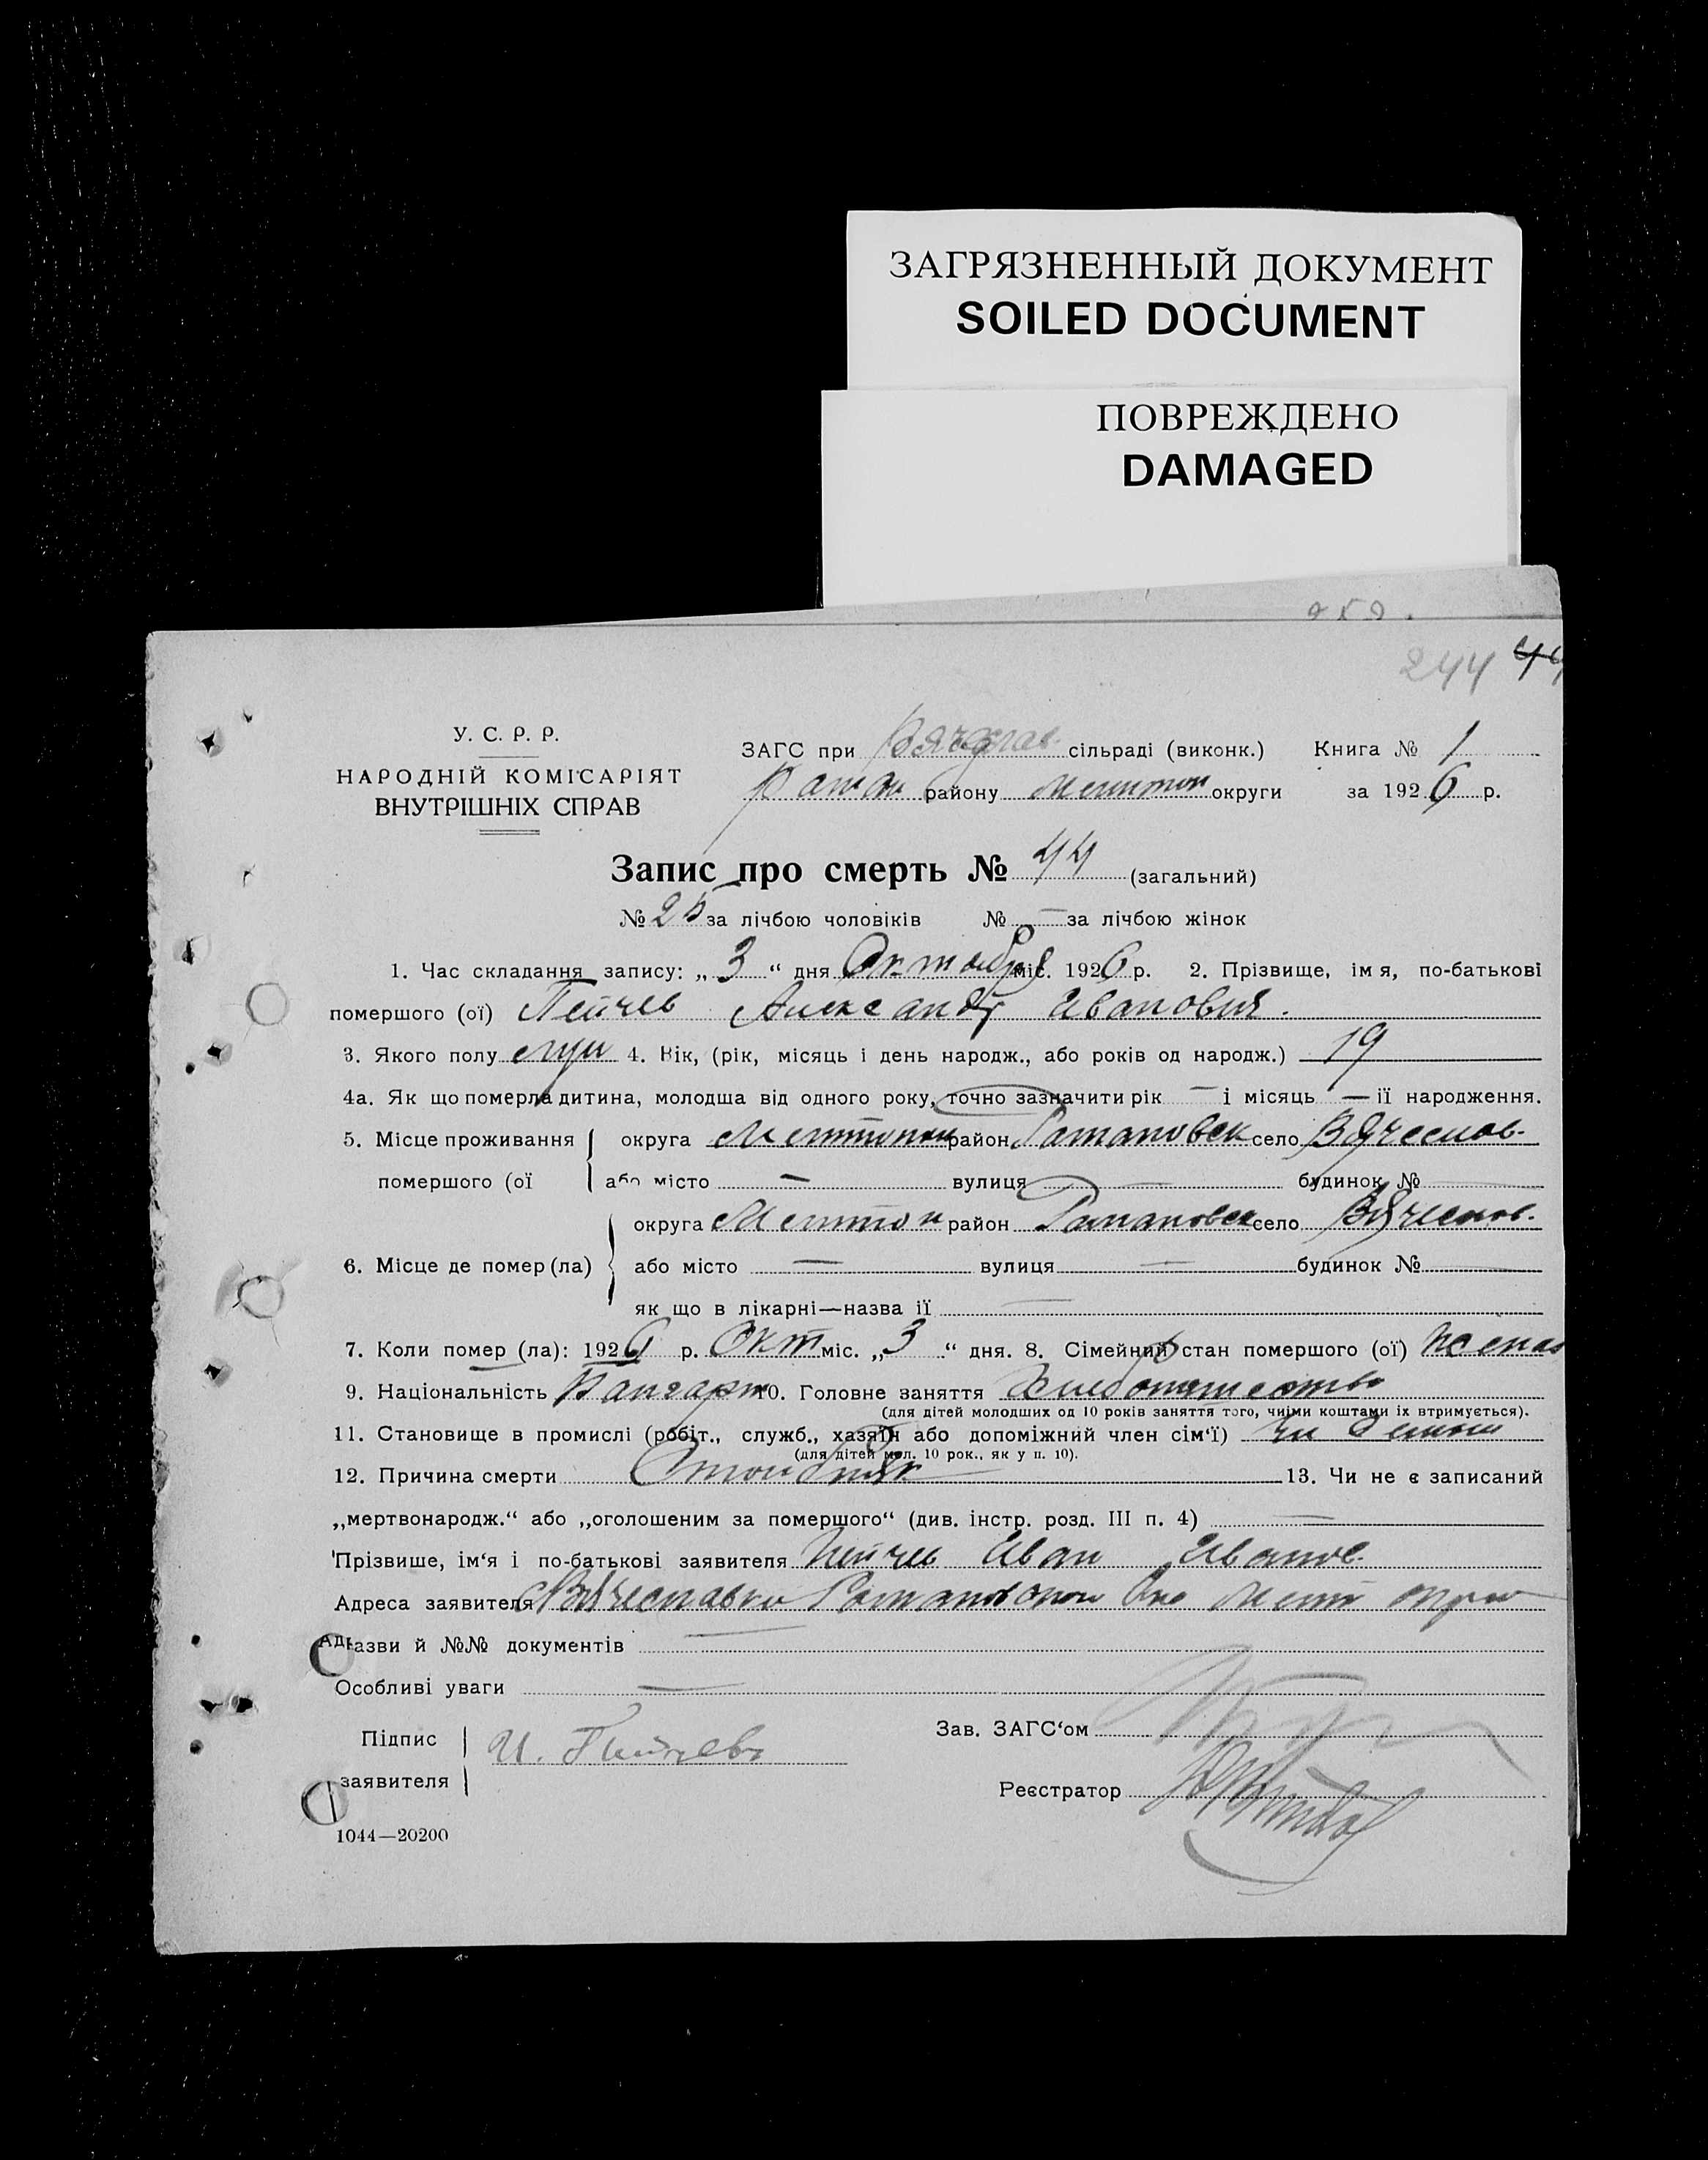 ЗАГРЯЗНЕННЫЙ ДОКУМЕНТ
SOILED DOCUMENT
ПОВРЕЖДЕНО
DAMAGED
244 44
У. С. Р. Р.
НАРОДНІЙ КОМІСАРІЯТ
ВНУТРІШНІХ СПРАВ
ЗАГС при сільраді (виконк.) Книга № 1
району округи за 1926 р.
Запис про смерть № 44 (загальний)
№ 25 за лічбою чоловіків № — за лічбою жінок
1. Час складання запису: „3“ дня Октября міс. 1926 р. 2. Прізвище, імя, по-батькові
помершого (ої) Пейчев Александр Иванович.
3. Якого полу муж 4. Вік, (рік, місяць і день народж., або років од народж.) 19
4а. Як що померла дитина, молодша від одного року, точно зазначити рік — і місяць — ії народження.
5. Місце проживання округа район Романовск село Вячеслов.
помершого (ої або місто — вулиця — будинок №
округа Мелитоп район Романовск село Вячеслов.
6. Місце де помер (ла) або місто — вулиця — будинок №
як що в лікарні—назва ії —
7. Коли помер (ла): 1926 р. Окт міс. „3“ дня. 8. Сімейний стан помершого (ої) женат
9. Національність Болгарин 10. Головне заняття Хлебопашество
(для дітей молодших од 10 років заняття того, чиїми коштами їх втримується).
11. Становище в промислі (робіт., служб., хазяїн або допоміжний член сім‘ї)
(для дітей мол. 10 рок., як у п. 10).
12. Причина смерти 13. Чи не є записаний
„мертвонародж.“ або „оголошеним за помершого“ (див. інстр. розд. III п. 4) —
Прізвище, ім‘я і по-батькові заявителя Пейчев Иван Иванов.
Адреса заявителя с Вячеславка Романовского
Адр
азви й №№ документів —
Особливі уваги —
Підпис
заявителя И. Пейчевъ
Зав. ЗАГС‘ом
Реєстратор
1044—20200